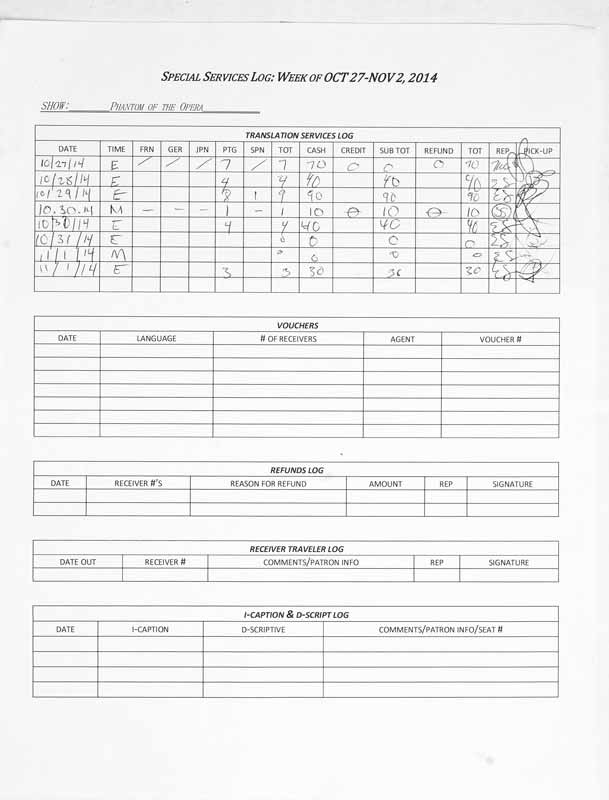 SPECIAL SERVICES LOG: WEEK OF OCT 27-NOV 2, 2014
SHOW: PHANTOM OF THE OPERA
TRANSLATION SERVICES LOG
DATE TIME FRN GER JPN PTG SPN TOT CASH CREDIT SUB TOT REFUND TOT REP PICK-UP
10/27/14 E / / / 7 / 7 70 0 0 0 70
10/28/14 E 4 4 40 40 40 ES
10/29/14 E 8 1 9 90 90 90 ES
10.30.14 M - - - 1 - 1 10 0 10 0 10
10/30/14 E 4 4 40 40 40 ES
10/31/14 E 0 0 0 0 ES
11/1/14 M 0 0 0 0 ES
11/1/14 E 3 3 30 30 30 ES
VOUCHERS
DATE LANGUAGE # OF RECEIVERS AGENT VOUCHER #
REFUNDS LOG
DATE RECEIVER #'S REASON FOR REFUND AMOUNT REP SIGNATURE
RECEIVER TRAVELER LOG
DATE OUT RECEIVER # COMMENTS/PATRON INFO REP SIGNATURE
I-CAPTION & D-SCRIPT LOG
DATE I-CAPTION D-SCRIPTIVE COMMENTS/PATRON INFO/SEAT #